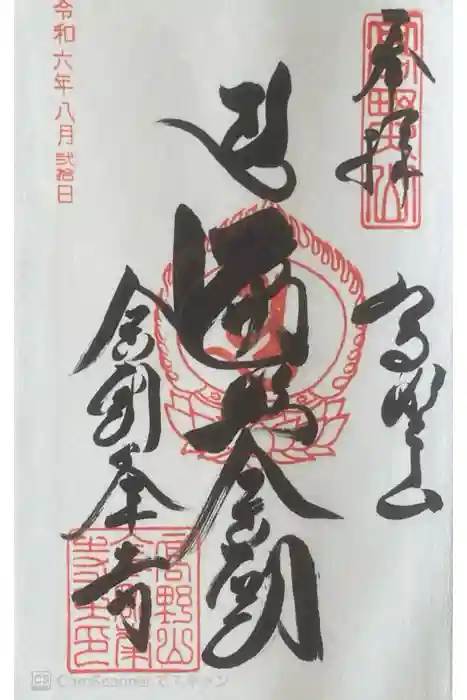 奉拝
高野山
高野山
遍照金剛
金剛峯寺
高野山
金剛峯
令和六年八月弐拾日
CS CamScanner でスキャン